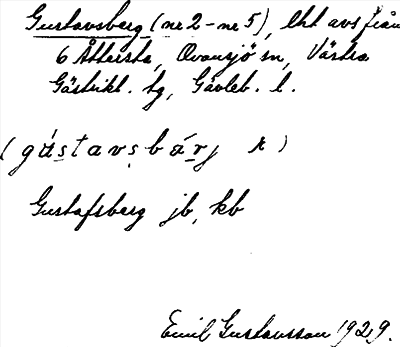 Gustavsberg (nr 2 – nr 5), lht avs från
6 Åttersta, Ovansjö sn, Västra
Gästrikl. tg, Gävleb. l.
(gu̇stavsbárj r)
Gustafsberg jb, kb
Emil Gustavsson 1929.